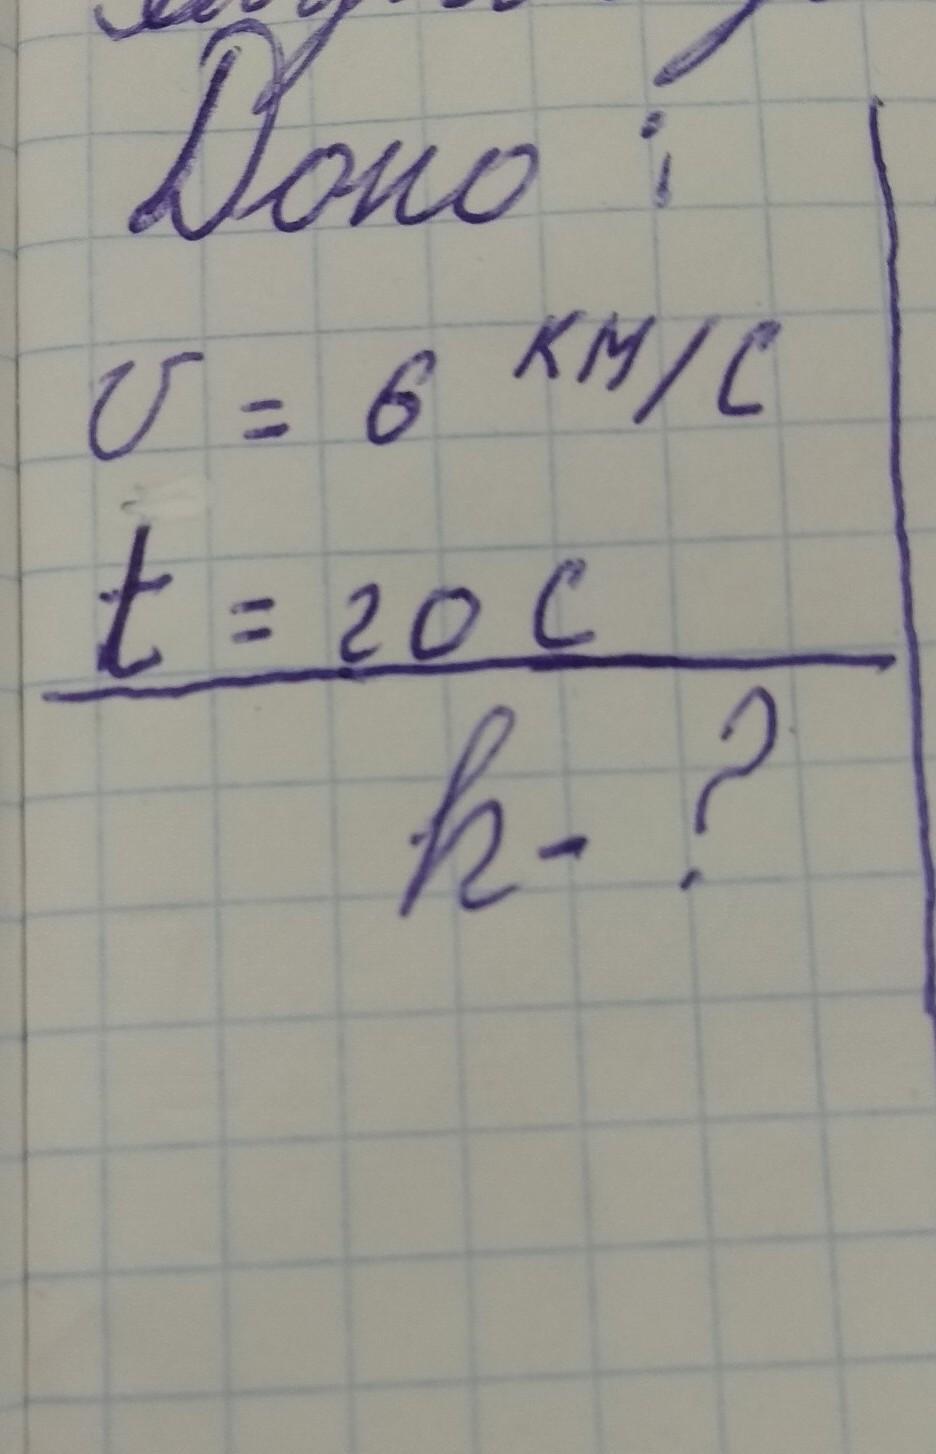 Доно :
υ = 6 км/с
t = 20 с
h - ?